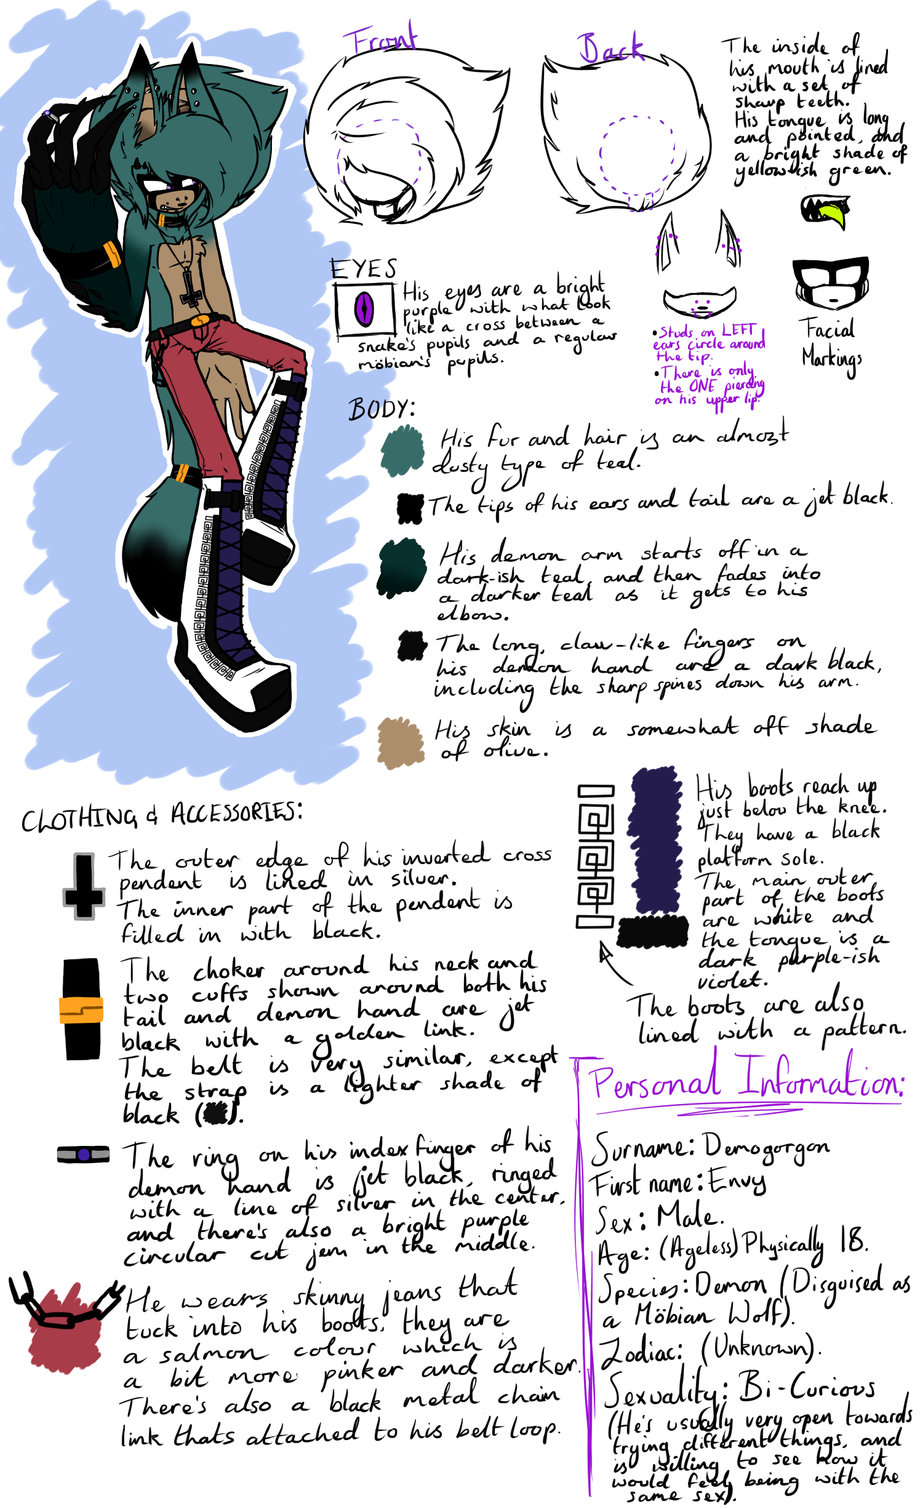 Front
Back
The inside of
his mouth is lined
with a set of
sharp teeth.
His tongue is long
and pointed, and
a bright shade of
yellow-ish green.
EYES
His eyes are a bright
purple with what look
like a cross between a
snake's pupils and a regular
möbian's pupils.
•Studs on LEFT
ears circle around
the tip.
•There is only
the ONE piercing
on his upper lip.
Facial
Markings
BODY:
His fur and hair is an almost
dusty type of teal.
The tips of his ears and tail are a jet black.
His demon arm starts off in a
dark-ish teal, and then fades into
a darker teal as it gets to his
elbow.
The long, claw-like fingers on
his demon hand are a dark black,
including the sharp spines down his arm.
His skin is a somewhat off shade
of olive.
CLOTHING & ACCESSORIES:
The outer edge of his inverted cross
pendent is lined in silver.
The inner part of the pendent is
filled in with black.
The choker around his neck and
two cuffs shown around both his
tail and demon hand are jet
black with a golden link.
The belt is very similar, except
the strap is a lighter shade of
black ( ).
The ring on his index finger of his
demon hand is jet black, ringed
with a line of silver in the center,
and there's also a bright purple
circular cut jem in the middle.
He wears skinny jeans that
tuck into his boots, they are
a salmon colour which is
a bit more pinker and darker.
There's also a black metal chain
link thats attached to his belt loop.
His boots reach up
just below the knee.
They have a black
platform sole.
The main outer
part of the boots
are white and
the tongue is a
dark purple-ish
violet.
The boots are also
lined with a pattern.
Personal Information:
Surname: Demogorgon
First name: Envy
Sex: Male.
Age: (Ageless) Physically 18.
Species: Demon (Disguised as
a Möbian Wolf).
Zodiac: (Unknown).
Sexuality: Bi-Curious
(He's usually very open towards
trying different things, and
is willing to see how it
would feel being with the
same sex).